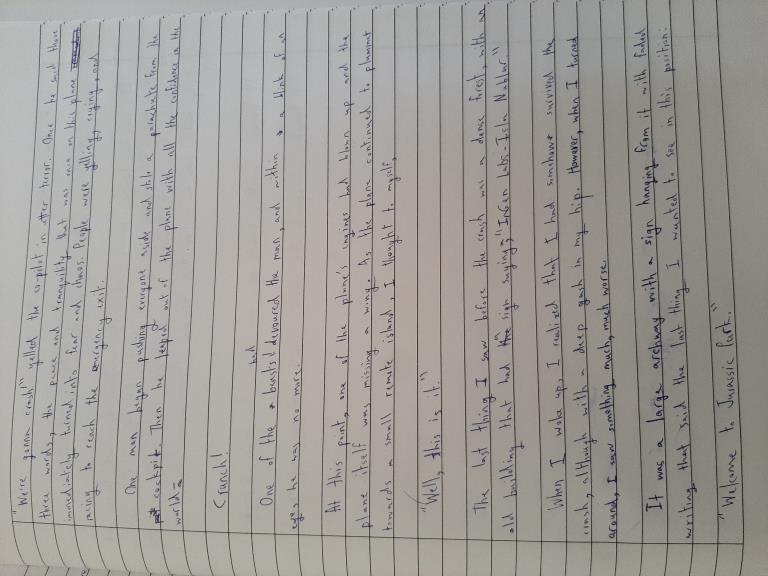 "We're gonna crash" yelled the co-pilot in utter terror. Once he said those
three words, the peace and tranquility that was once on this plane
immediately turned into fear and chaos. People were yelling, crying, and
racing to reach the emergency exit.
One man began pushing everyone aside and stole a parachute from the
cockpit. Then he leaped out of the plane with all the confidence in the
world-
Crunch!
One of the beasts had devoured the man, and within a blink of an
eye, he was no more.
At this point, one of the plane's engines had blown up and the
plane itself was missing a wing. As the plane continued to plummet
towards a small remote island, I thought to myself,
"Well, this is it."
The last thing I saw before the crash was a dense forest, with an
old building that had a sign saying, "InGen Labs - Isla Nublar"
When I woke up, I realized that I had somehow survived the
crash, although with a deep gash in my hip. However, when I turned
around, I saw something much, much worse.
It was a large archway with a sign hanging from it with faded
writing that said the last thing I wanted to see in this position:
"Welcome to Jurassic Park."